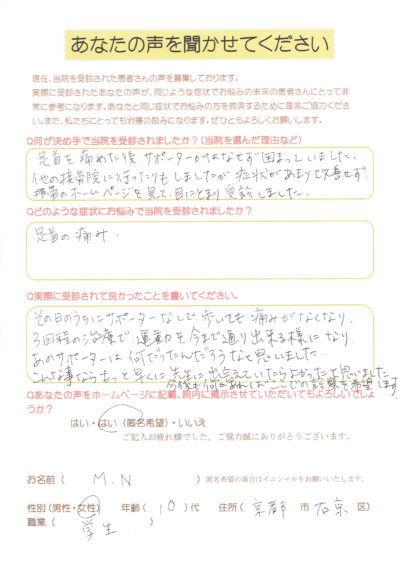 あなたの声を聞かせてください
現在、当院を受診された患者さんの声を募集しております。
実際に受診されたあなたの声が、同じような症状でお悩みの未来の患者さんにとって非
常に参考になります。あなたと同じ症状でお悩みの方を救済するために是非ご協力くださ
い。また、私たちにとっても治療の励みになります。ぜひともよろしくお願いします。
Q何が決め手で当院を受診されましたか?(当院を選んだ理由など)
足首を痛めた後 サポーターがはなせず 困まっていました。
他の接骨院に行ったりもしましたが 症状があまり改善せず
携帯のホームページを見て、目にとまり 受診しました。
Qどのような症状にお悩みで当院を受診されましたか?
足首の痛み.
Q実際に受診されて良かったことを書いてください。
その日のうちにサポーターなしで歩いても痛みがなくなり、
3回程の治療で、運動を今まで通り出来る様になり
あのサポーターは何だったんだろうなと思いました。
こんな事ならもっと早くに先生に出会えていたらよかったと思いました
今後も何かあればここでの診察を希望します
Qあなたの声をホームページに記載、院内に掲示させていただいてもよろしいでしょ
うか?
はい・はい(匿名希望)・いいえ
ご記入お疲れ様でした。ご協力誠にありがとうございます。
お名前 ( M.N ) 匿名希望の場合はイニシャルをお願いいたします。
性別 (男性・女性) 年齢 ( 10 ) 代 住所 ( 京都 市 右京 区)
職業 ( 学生 )